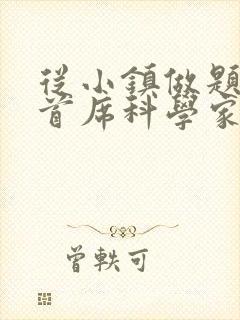 從小鎮做題
首席科學家
曾軼可